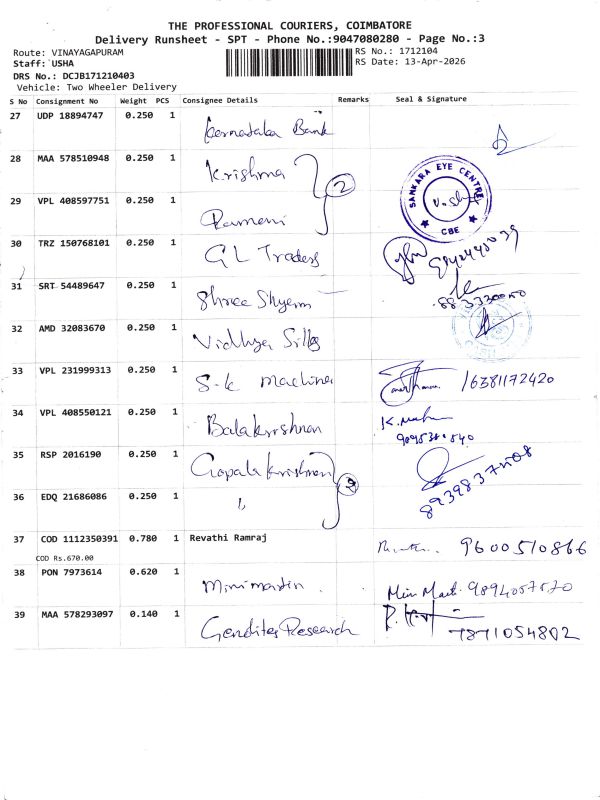 THE PROFESSIONAL COURIERS, COIMBATORE
Delivery Runsheet - SPT - Phone No.:9047080280 - Page No.:3
Route: VINAYAGAPURAM
Staff: USHA
DRS No.: DCJB171210403
Vehicle: Two Wheeler Delivery
RS No.: 1712104
RS Date: 13-Apr-2026
S No Consignment No Weight PCS Consignee Details Remarks Seal & Signature
27 UDP 18894747 0.250 1 Karnataka Bank
28 MAA 578510948 0.250 1 Krishma 2
SANKARA EYE CENTRE CBE
29 VPL 408597751 0.250 1 Ramani
30 TRZ 150768101 0.250 1 GL Traders
31 SRT 54489647 0.250 1 Shree Shyam
32 AMD 32083670 0.250 1 Vidhya Silks
33 VPL 231999313 0.250 1 S-k machine 16381172420
34 VPL 408550121 0.250 1 Balakrishnan
35 RSP 2016190 0.250 1 Gopala krishnan 2
8939837508
36 EDQ 21686086 0.250 1 "
37 COD 1112350391 0.780 1 Revathi Ramraj 9600510866
COD Rs.670.00
38 PON 7973614 0.620 1 minimartin Mini Mart 9894057570
39 MAA 578293097 0.140 1 Genditer Research 7871054802